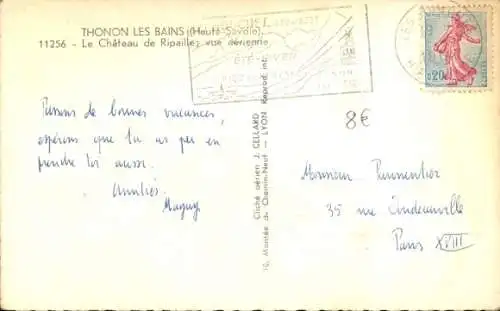 THONON LES BAINS (Haute-Savoie)
11256 - Le Château de Ripaille, vue aérienne
0,20
8€
Passons de bonnes vacances,
espérons que tu as pu en
prendre toi aussi.
Amitiés.
Maguy
Cliché aérien J. CELLARD
10, Montée du Chemin-Neuf - LYON Reprod. int.
Monsieur
35 rue
Paris XVIII